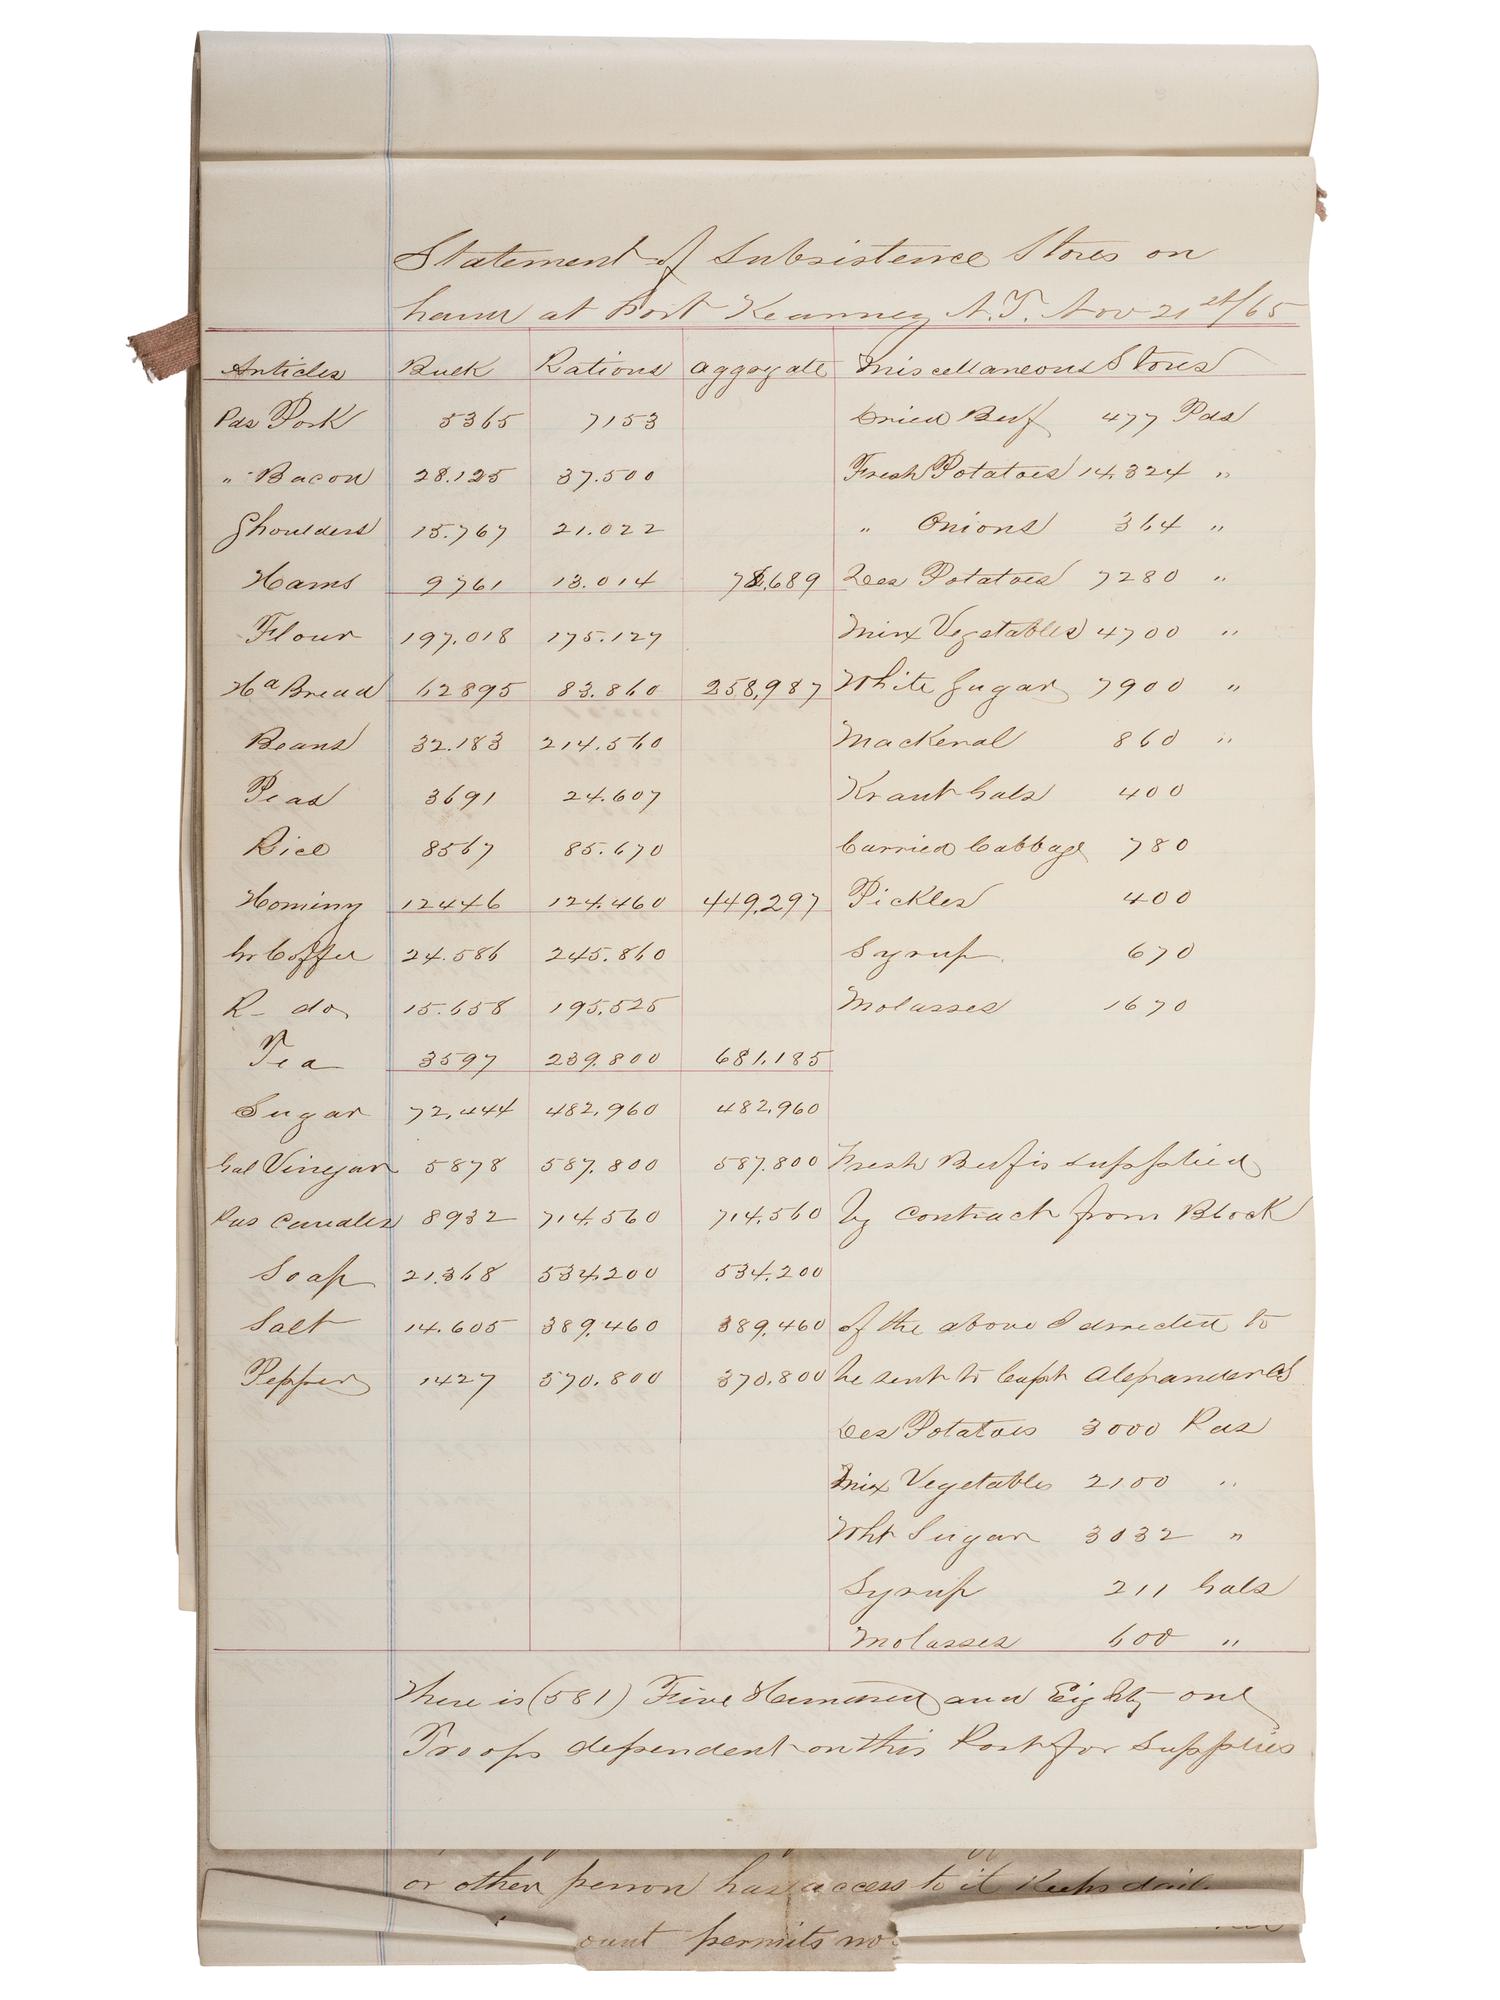 Statement of Subsistence Stores on
hand at Fort Kearney N.T. Nov 21st/65
Articles Bulk Rations aggregate Miscellaneous Stores
Pds Pork 5365 7153 Dried Beef 477 Pds
" Bacon 28.125 37.500 Fresh Potatoes 14.324 "
Shoulders 15.767 21.022 " Onions 364 "
Hams 9761 13.014 78.689 Des Potatoes 7280 "
Flour 197.018 175.127 Mix Vegetables 4700 "
Hd Bread 62895 83.860 258,987 White Sugar 7900 "
Beans 32.183 214.560 Mackeral 860 "
Peas 3691 24.607 Kraut Gals 400
Rice 8567 85.670 Curried Cabbage 780
Hominy 12446 124.460 449,297 Pickles 400
Gr Coffee 24.586 245.860 Syrup 670
R- do, 15.658 195,525 Molasses 1670
Tea 3597 239.800 681,185
Sugar 72,444 482,960 482,960
Gal Vinegar 5878 587.800 587.800 Fresh Beef is supplied
Pds Candles 8932 714.560 714.560 by contract from Block
Soap 21.368 534.200 534.200
Salt 14.605 389,460 389,460 of the above I directed to
Pepper 1427 570.800 370.800 be sent to Capt Alexander CS
Des Potatoes 3000 Pds
Mix Vegetables 2100 "
Wht Sugar 3032 "
Syrup 211 Gals
Molasses 600 "
There is (581) Five Hundred and Eighty one
Troops dependent on this Post for Supplies
or other person has access to it Keeps
ount permits no